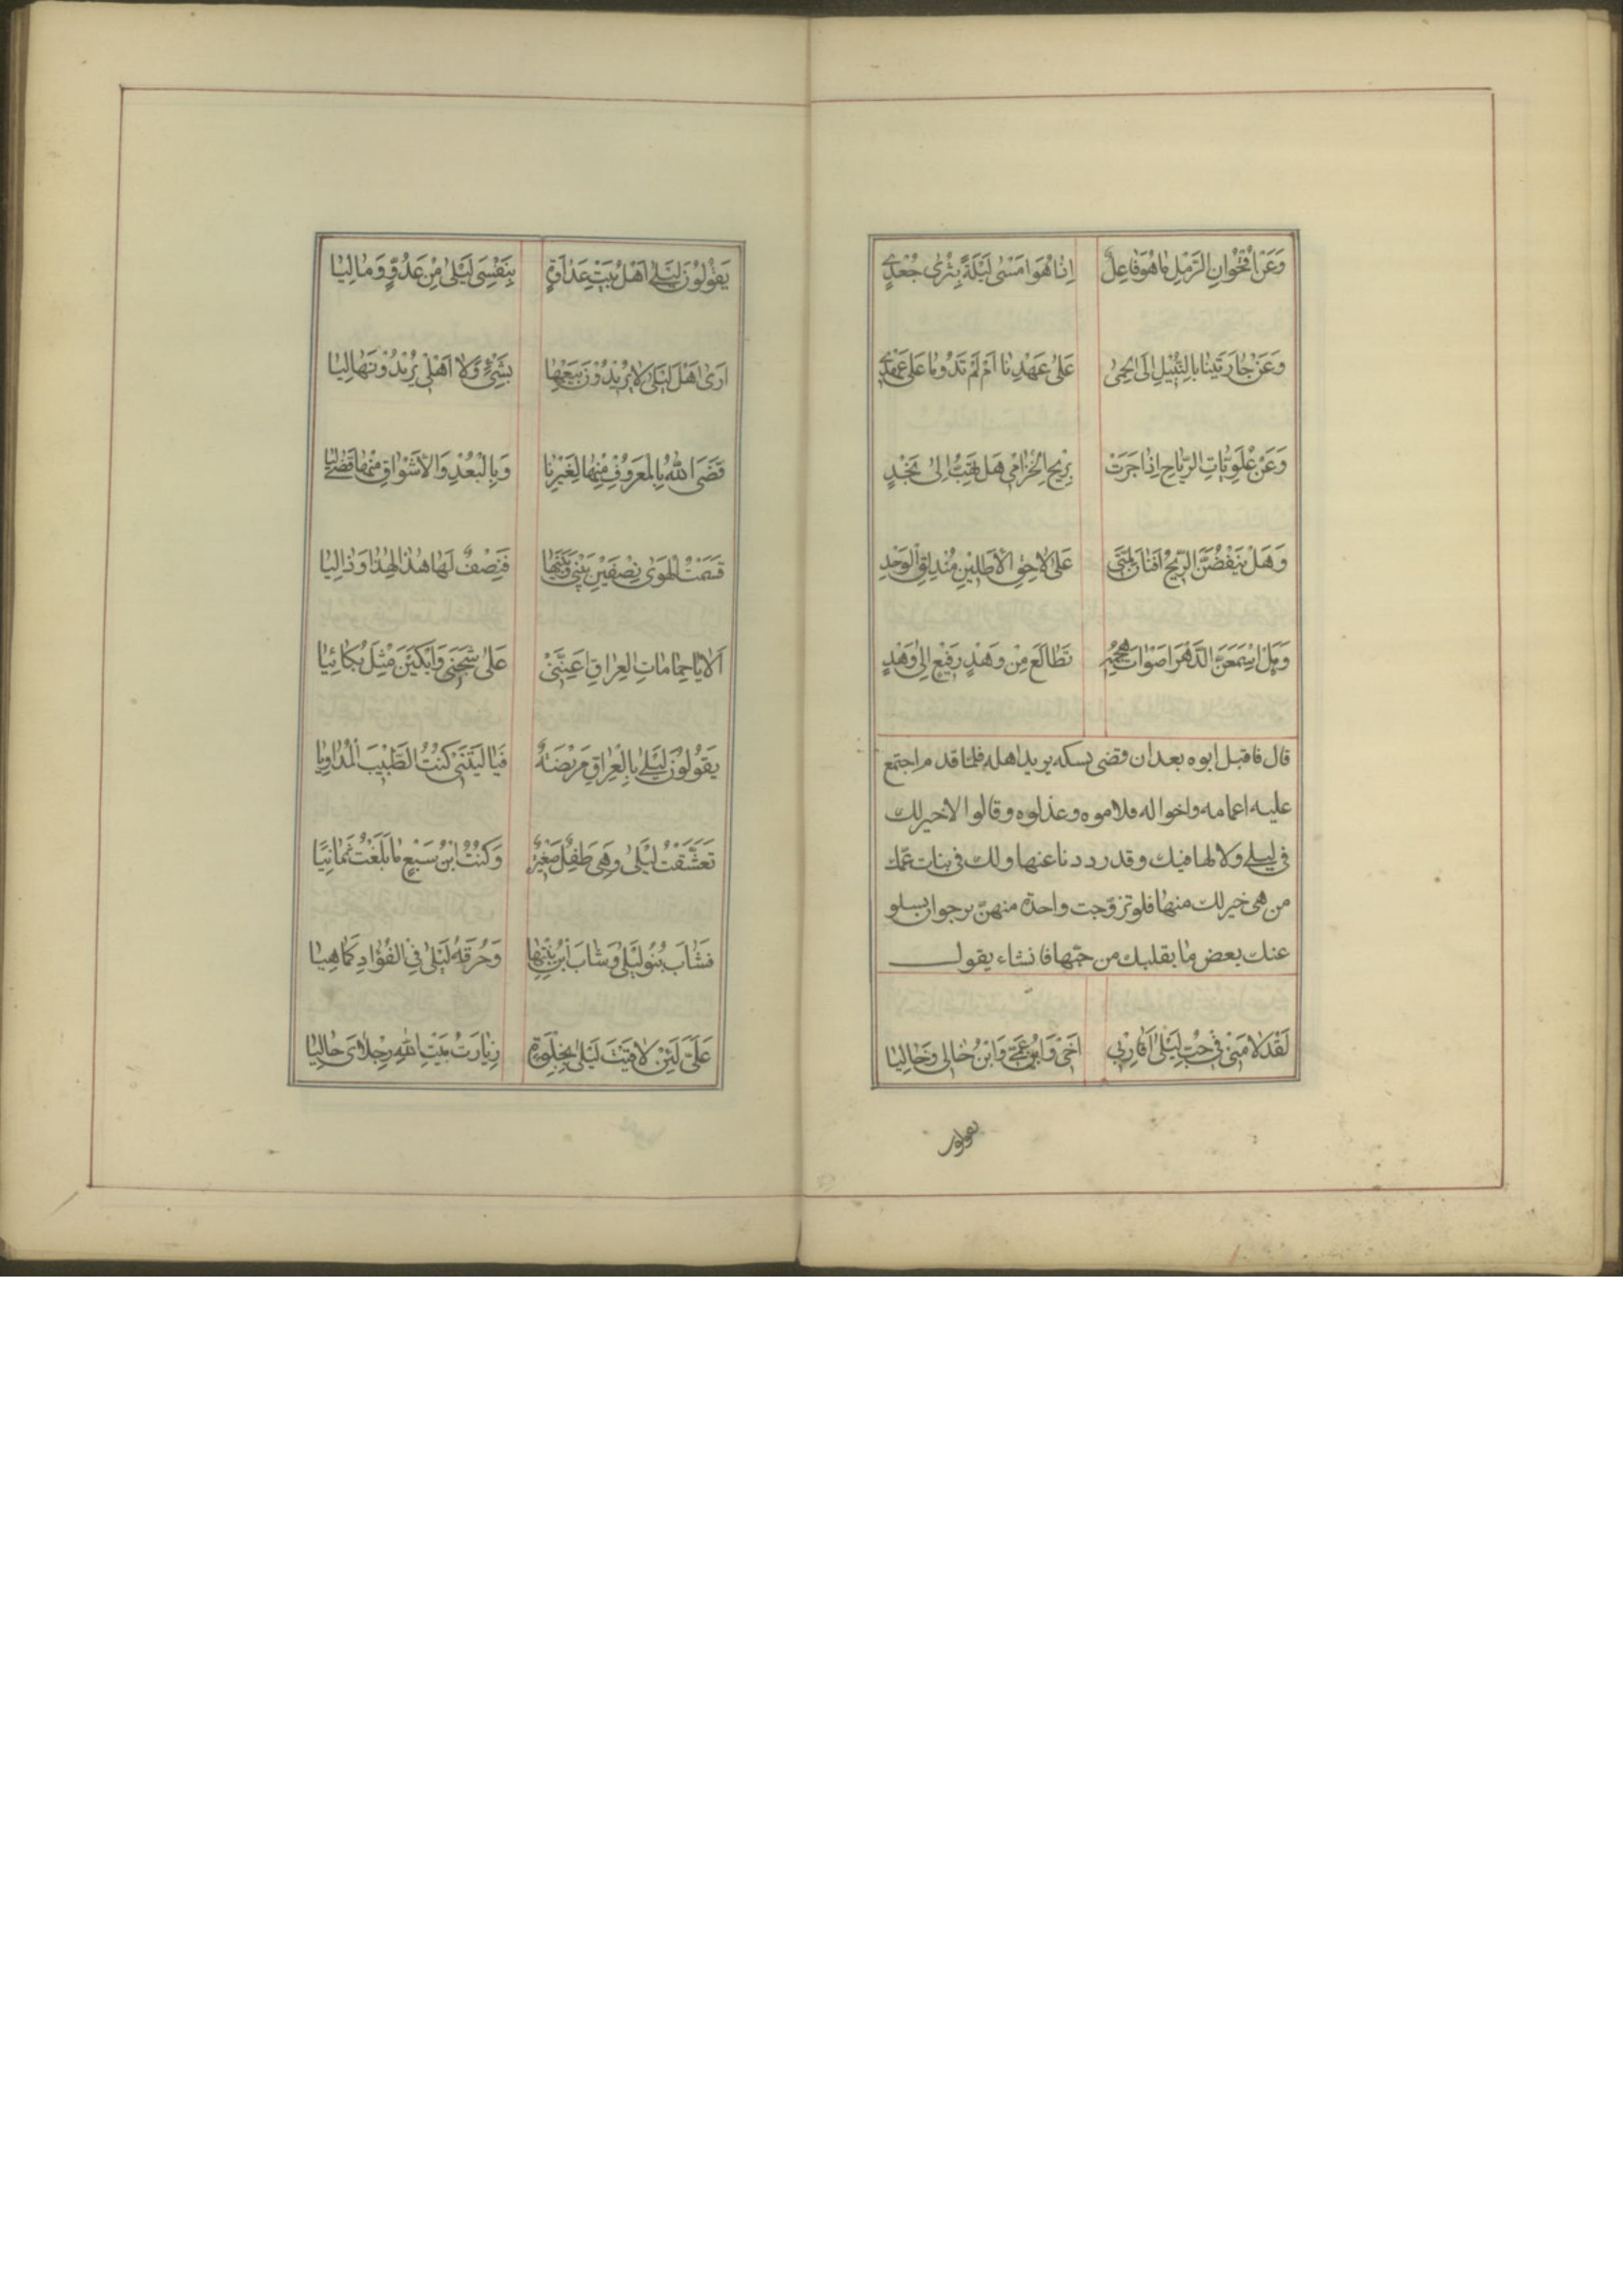 وَعَنْ اُقْحُوَانِ الرَّمْلِ مَا هُوَ فَاعِلٌ اِذَا هُوَ اَمْسٰى لَيْلَةً بِثَرٰى جُعْدِي
وَعَنْ جَارَتَيْنَا بِالِثَّبِيْلِ اِلَى الحِمٰى عَلىٰ عَهْدِنَا اَمْ لَمْ تَدُومَا عَلىٰ عَهْدِي
وَعَنْ عُلَوِيَّاتِ الرِّيَاحِ اِذَا جَرَتْ بِرِيْحِ الخُزَامٰى هَل تَهِبُّ اِلىٰ نَجْدٍ
وَهَل يَنْفُضَنَّ الرِّيْحُ اَفْنَانَ لِمَّتِي عَلىٰ لَاحِقِ الأَطْلَيْنِ مُنْدَلِقِ الوَخْدِ
وَهَل اَسْمَعَنَّ الدَّهْرَ اَصْوَاتَ هَجْمَةٍ تَطَالَعُ مِنْ وَهْدٍ رَفِيْعٍ اِلىٰ وَهْدٍ
قال فاقبل ابوه بعد ان قضى نسكه يريد اهله فلما قدم اجتمع
عليه اعمامه واخواله ولاموه وعذلوه وقالوا لا خير لك
في ليلى ولا لها فيك وقد رددنا عنها ولك في بنات عمّك
من هى خير لك منها فلو تزوّجت واحدة منهنّ نرجو ان يسلو
عنك بعض ما بقلبك من حبّها فانشاء يقول
لَقَدْ لَامَنِيْ فِي حُبِّ لَيْلىٰ اَقَارِبِي اَخِيْ وَابْنُ عَمِّيْ وَابْنُ خَالِي وَخَالِيَا
يقولون
يَقُوْلُوْنَ لَيْلىٰ اَهْلُ بَيْتِ عَدَاوَةٍ بِنَفْسِيَ لَيْلىٰ مِنْ عَدُوٍّ وَمَالِيَا
اَرىٰ اَهْلَ لَيْلىٰ لَا يُرِيْدُوْنَ بَيْعَهَا بِشَيْءٍ وَلَا اَهْلِيْ يُرِيْدُوْنَهَا لِيَا
قَضَى اللّٰهُ بِالْمَعْرُوفِ مِنْهَا لِغَيْرِنَا وَبِالْبُعْدِ وَالْأَشْوَاقِ مِنْهَا قَضىٰ لِيَا
قَسَمْتُ الْهَوىٰ نِصْفَيْنِ بَيْنِي وَبَيْنَهَا فَنِصْفٌ لَهَا هٰذَا لِهٰذَا وَذَا لِيَا
اَلَا يَا حَمَامَاتِ العِرَاقِ اَعِنَّنِيْ عَلىٰ شَجَنِي وَابْكِيْنَ مِثْلَ بُكَائِيَا
يَقُوْلُوْنَ لَيْلىٰ بِالْعِرَاقِ مَرِيْضَةٌ فَيَا لَيْتَنِيْ كُنْتُ الطَّبِيْبَ الْمُدَاوِيَا
تَعَشَّقْتُ لَيْلىٰ وَهِيَ طِفْلٌ صَغِيْرَةٌ وَكُنْتُ ابْنَ سَبْعٍ مَا بَلَغْتُ ثَمَانِيًا
فَشَابَ بَنُو لَيْلىٰ وَشَابَ ابْنُ بِنْتِهَا وَحُرْقَةُ لَيْلىٰ فِي الفُؤَادِ كَمَا هِيَا
عَلَيَّ لَئِنْ لَاقَيْتُ لَيْلىٰ بِخَلْوَةٍ زِيَارَتُ بَيْتِ اللّٰهِ رِجْلَايَ حَافِيَا